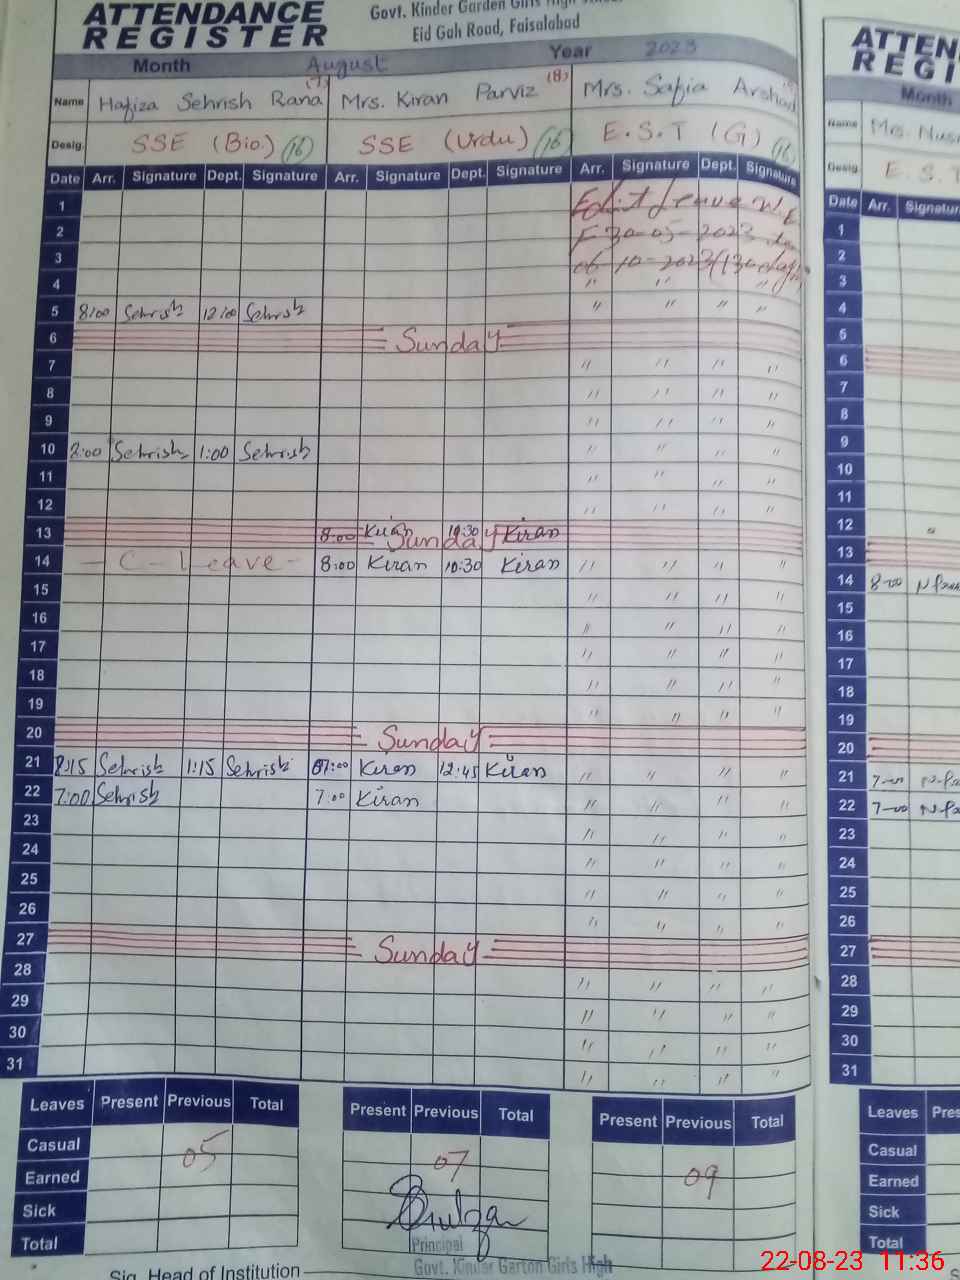 ATTENDANCE REGISTER
Govt. Kinder Garden Girls High
Eid Gah Road, Faisalabad
Month August Year 2023
Name Hafiza Sehrish Rana (7) Mrs. Kiran Parviz (8) Mrs. Safia Arshad
Desig. SSE (Bio.) (16) SSE (Urdu) (16) E.S.T (G) (16)
Date Arr. Signature Dept. Signature Arr. Signature Dept. Signature Arr. Signature Dept. Signature
1 Leave
2 30-05-2023
3 10-2023 (130 days)
4 " " "
5 8:00 Sehrish 12:00 Sehrish " " " "
6 Sunday
7 " " " "
8 " " " "
9 " " " "
10 8:00 Sehrish 1:00 Sehrish " " " "
11 " " " "
12 " " " "
13 8:00 Kiran 10:30 Kiran Sunday
14 - C - Leave - 8:00 Kiran 10:30 Kiran " " " "
15 " " " "
16 " " " "
17 " " " "
18 " " " "
19 " " " "
20 Sunday
21 8:15 Sehrish 1:15 Sehrish 07:00 Kiran 12:45 Kiran " " " "
22 7:00 Sehrish 7:00 Kiran " " " "
23 " " " "
24 " " " "
25 " " " "
26 " " " "
27 Sunday
28 " " " "
29 " " " "
30 " " " "
31 " " " "
Leaves Present Previous Total Present Previous Total Present Previous Total
Casual 05 07 09
Earned
Sick
Total
Principal
Govt. Kinder Garton Girls High
Sig. Head of Institution
ATTEN
REGI
Month
Name Mrs.
Desig. E.S.T
Date Arr. Signature
1
2
3
4
5
6
7
8
9
10
11
12
13
14 8-00
15
16
17
18
19
20
21 7-00
22 7-00
23
24
25
26
27
28
29
30
31
Leaves Pres
Casual
Earned
Sick
Total
22-08-23 11:36